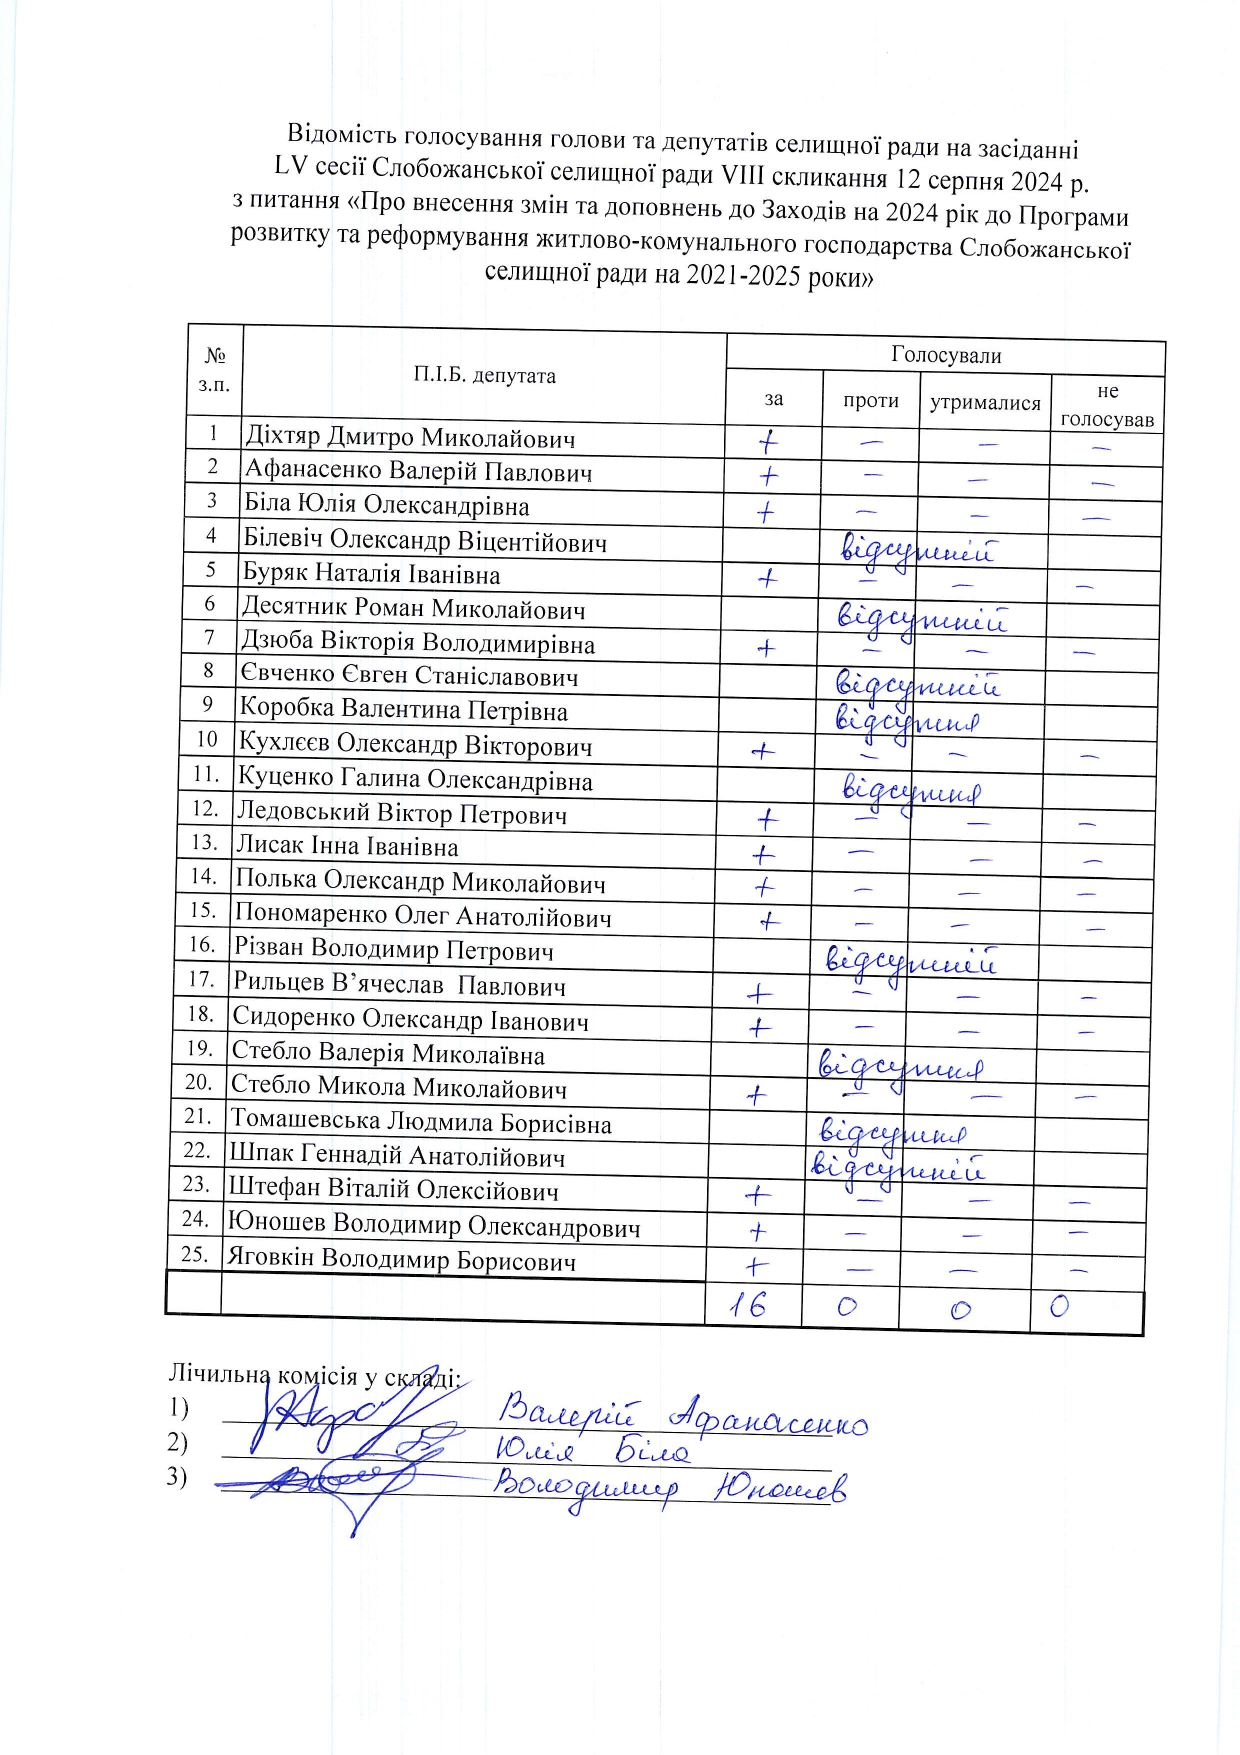 Відомість голосування голови та депутатів селищної ради на засіданні
LV сесії Слобожанської селищної ради VIII скликання 12 серпня 2024 р.
з питання «Про внесення змін та доповнень до Заходів на 2024 рік до Програми
розвитку та реформування житлово-комунального господарства Слобожанської
селищної ради на 2021-2025 роки»
№ з.п. П.І.Б. депутата Голосували
за проти утрималися не голосував
1 Діхтяр Дмитро Миколайович + — — —
2 Афанасенко Валерій Павлович + — — —
3 Біла Юлія Олександрівна + — — —
4 Білевіч Олександр Віцентійович відсутній
5 Буряк Наталія Іванівна + — — —
6 Десятник Роман Миколайович відсутній
7 Дзюба Вікторія Володимирівна + — — —
8 Євченко Євген Станіславович відсутній
9 Коробка Валентина Петрівна відсутня
10 Кухлєєв Олександр Вікторович + — — —
11. Куценко Галина Олександрівна відсутня
12. Ледовський Віктор Петрович + — — —
13. Лисак Інна Іванівна + — — —
14. Полька Олександр Миколайович + — — —
15. Пономаренко Олег Анатолійович + — — —
16. Різван Володимир Петрович відсутній
17. Рильцев В’ячеслав Павлович + — — —
18. Сидоренко Олександр Іванович + — — —
19. Стебло Валерія Миколаївна відсутня
20. Стебло Микола Миколайович + — — —
21. Томашевська Людмила Борисівна відсутня
22. Шпак Геннадій Анатолійович відсутній
23. Штефан Віталій Олексійович + — — —
24. Юношев Володимир Олександрович + — — —
25. Яговкін Володимир Борисович + — — —
16 0 0 0
Лічильна комісія у складі:
1) Валерій Афанасенко
2) Юлія Біла
3) Володимир Юношев